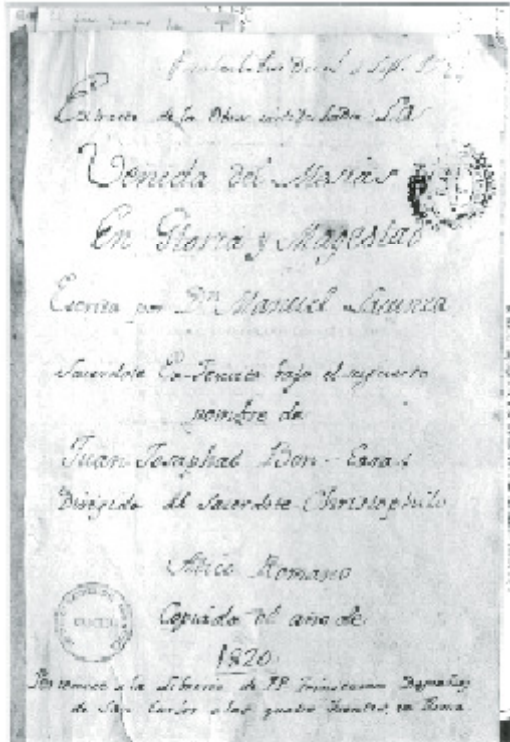 Extracto de la Obra intitulada: La
Venida del Mesias
En Gloria y Magestad
Escrita por Dn Manuel Lacunza
Sacerdote Ex-Jesuita bajo el supuesto
nombre de
Juan Josaphat Ben-Ezra
Dirigido al Sacerdote Christophilo
Copiado el año de
1820
Pertenece a la Libreria de PP. Trinitarios
de San Carlos a las quatro fuentes, en Roma